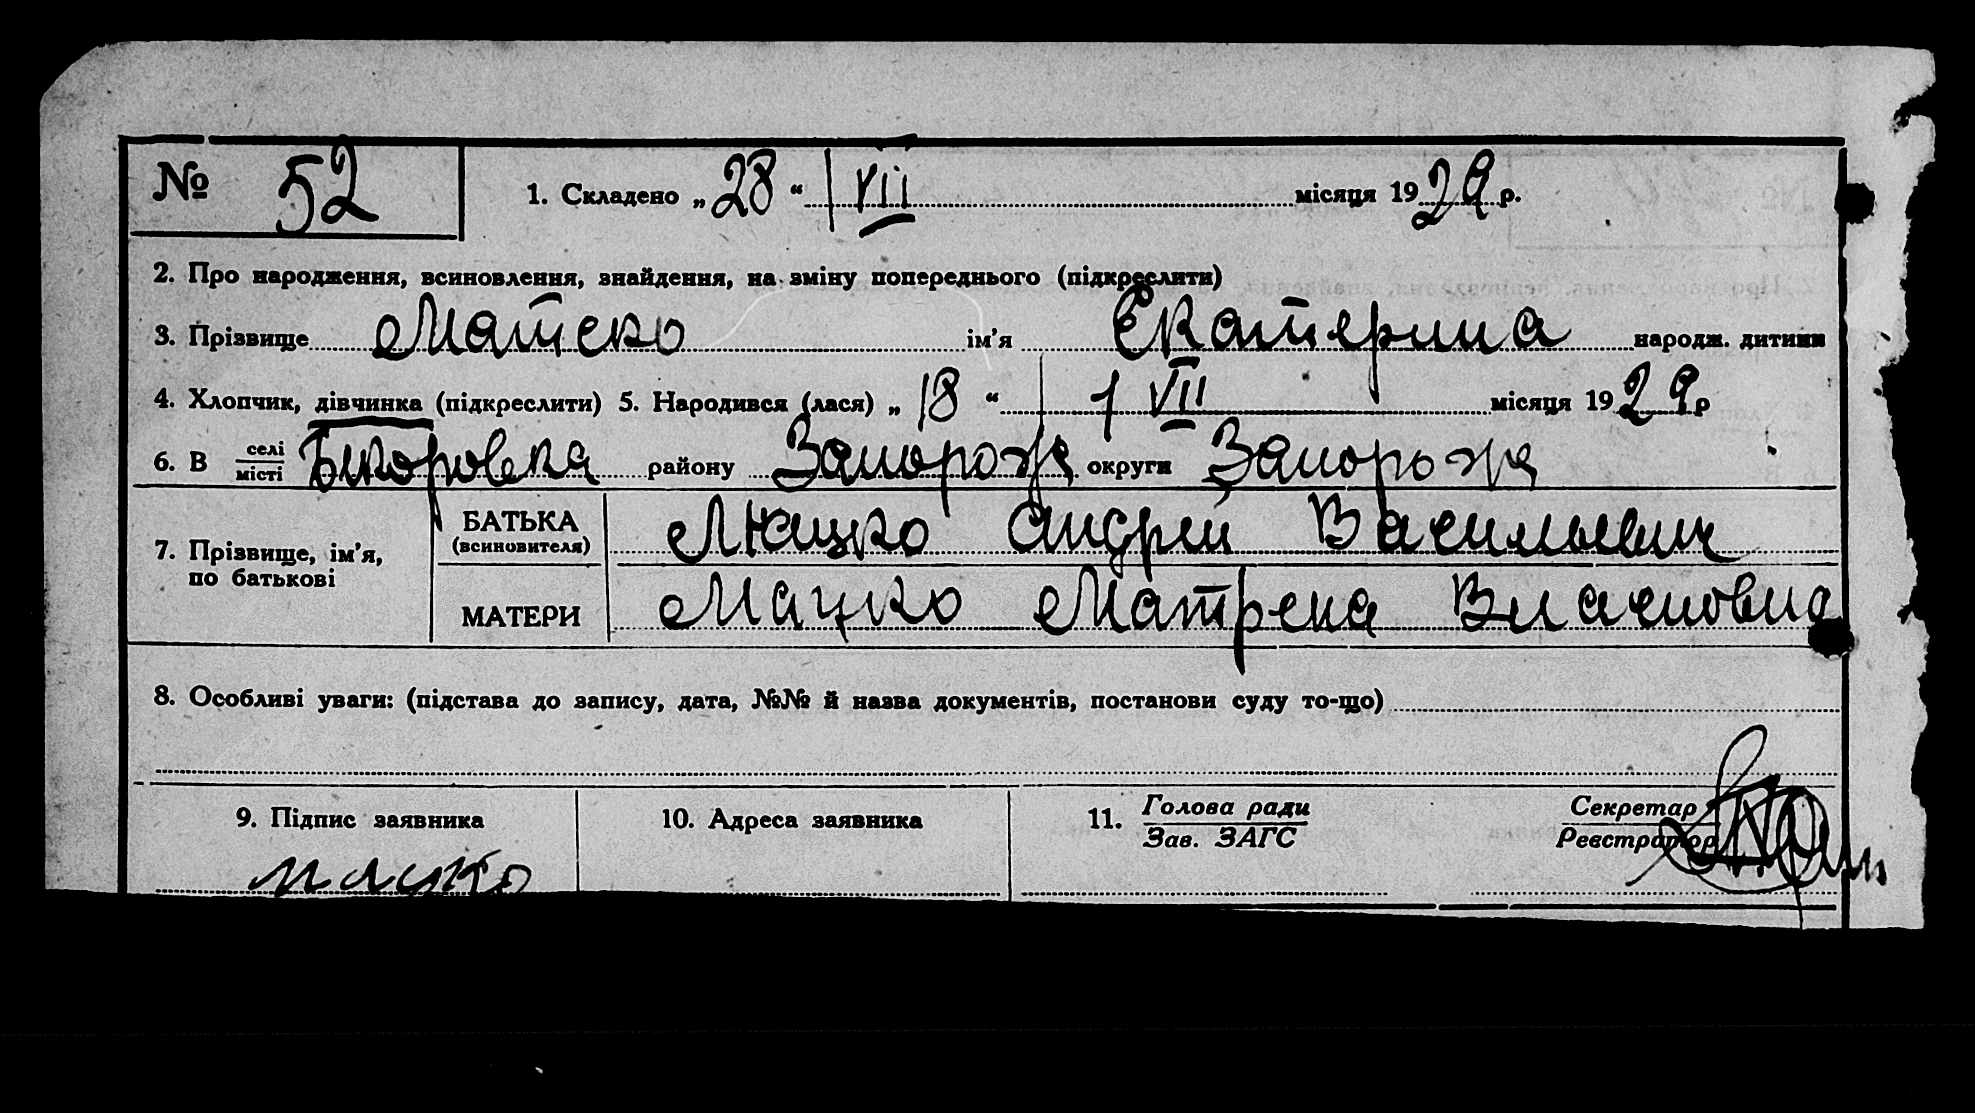 № 52 1. Складено „28“ VII місяця 1929 р.
2. Про народження, всиновлення, знайдення, на зміну попереднього (підкреслити)
3. Прізвище Матеко ім'я Екатерина народж. дитини
4. Хлопчик, дівчинка (підкреслити) 5. Народився (лася) „18“ VII місяця 1929 р
6. В селі місті району Запорожя округи Запорожя
7. Прізвище, ім'я, по батькові
БАТЬКА (всиновителя) Андрей Васильевич
МАТЕРИ Мацко Матрена Власовна
8. Особливі уваги: (підстава до запису, дата, №№ й назва документів, постанови суду то-що)
9. Підпис заявника 10. Адреса заявника 11. Голова ради Секретар
Зав. ЗАГС Реєстратор
мацко